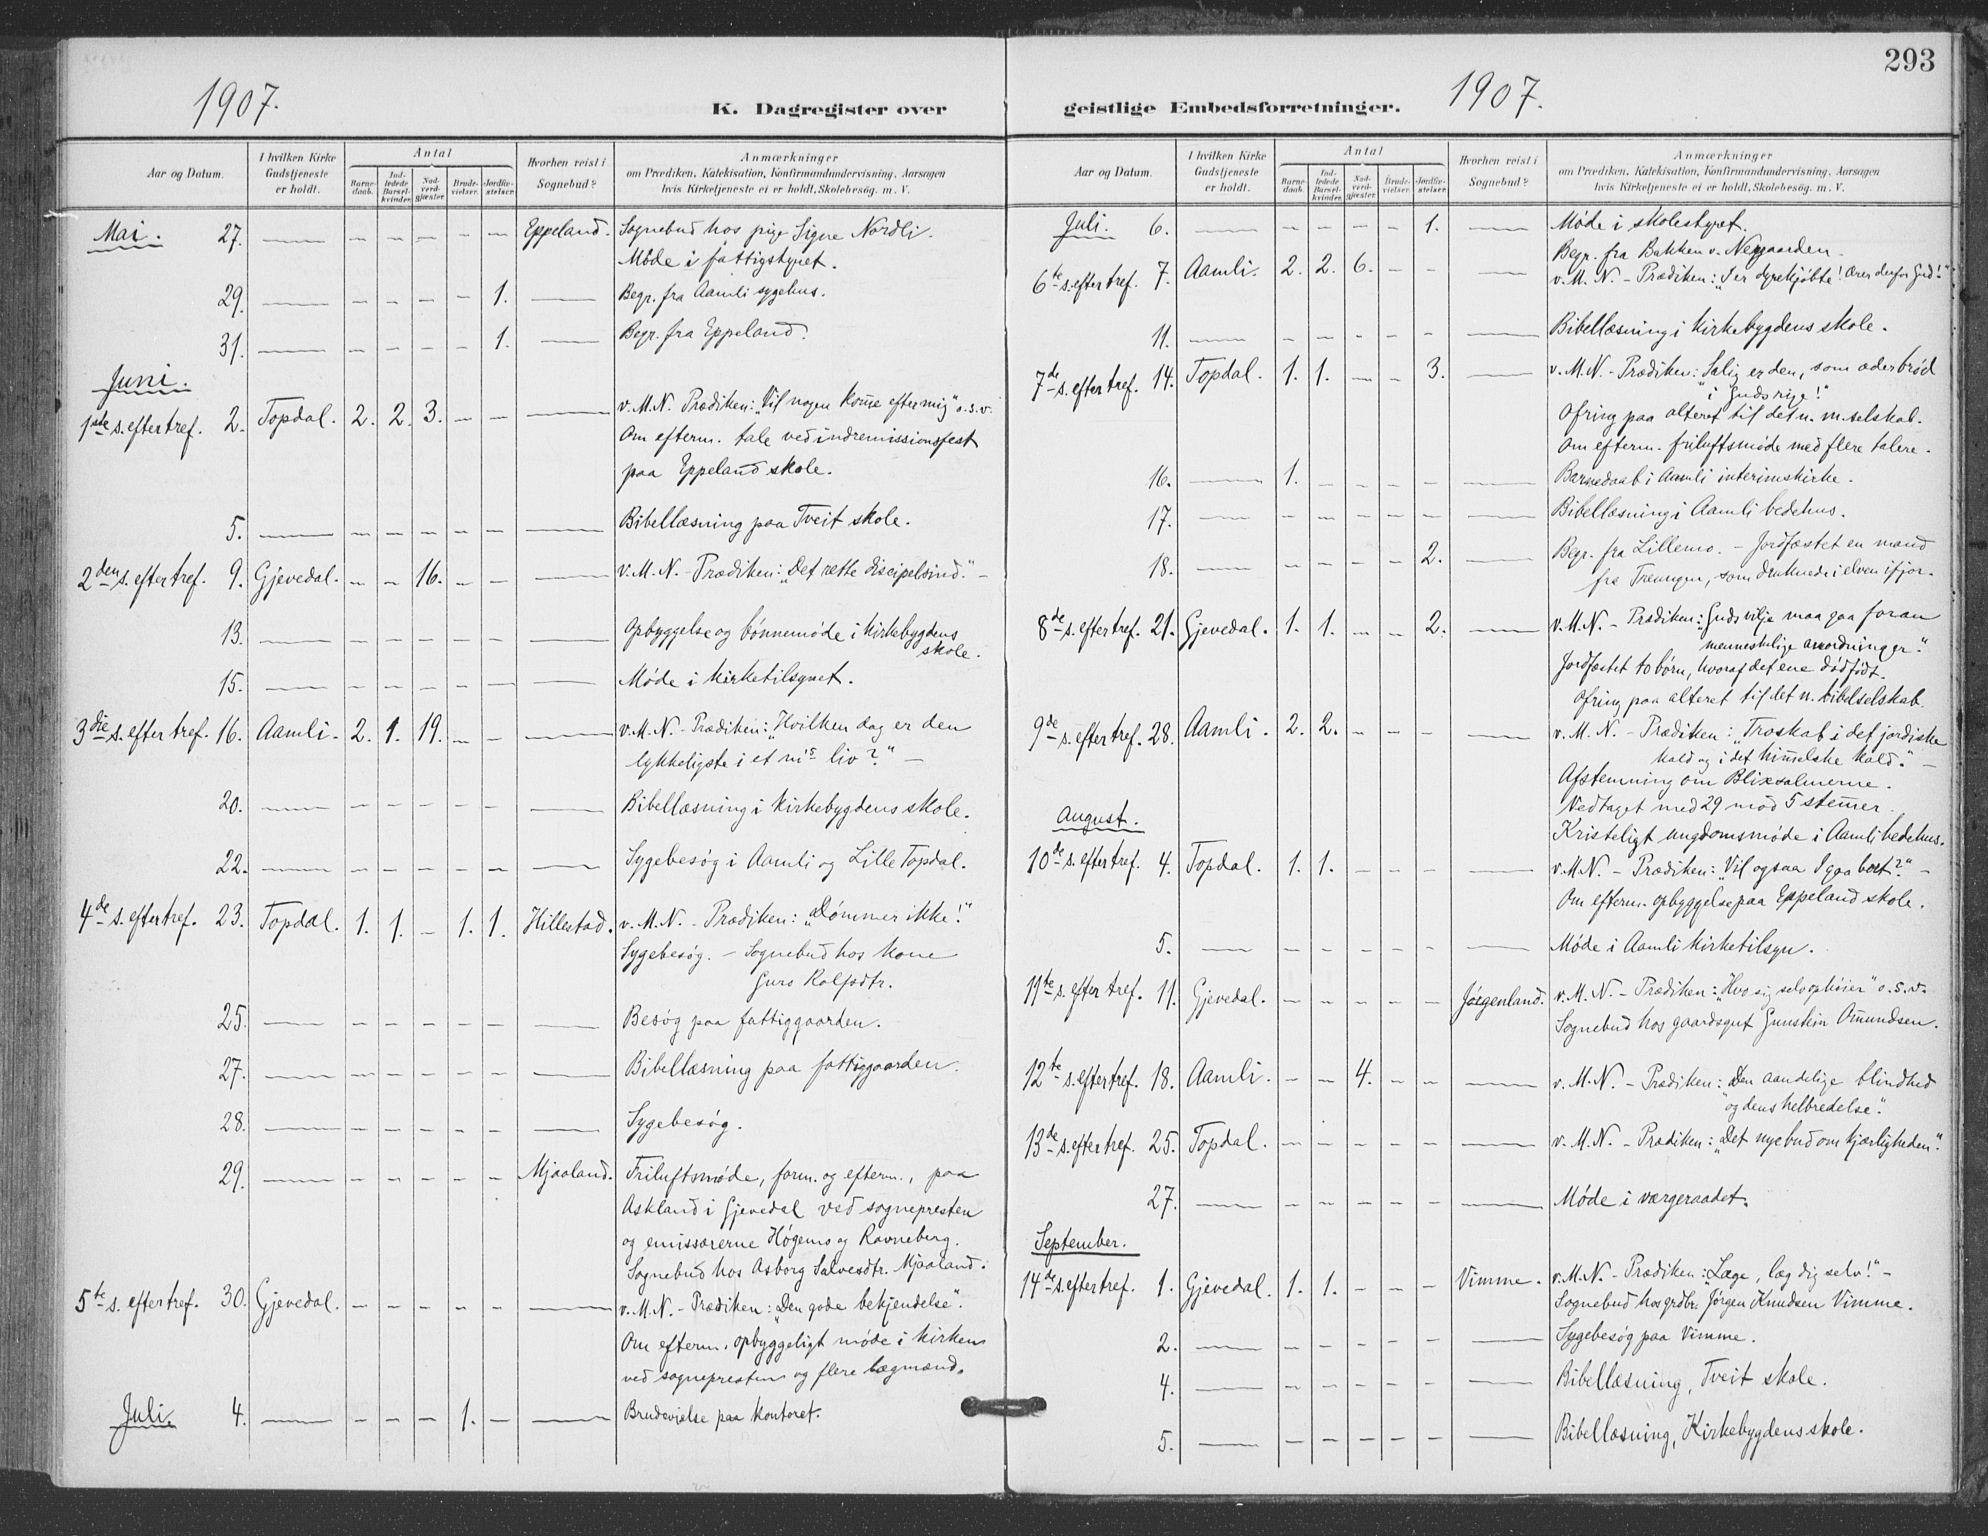 1907.
K. Dagregister over
Aar og Datum.
I hvilken Kirke Gudstjeneste er holdt.
Antal
Barnedaab.
Indledede Barselkvinder.
Nadverdgjæster.
Brudevielser.
Jordfæstelser.
Hvorhen reist i Sognebud?
Anmærkninger
om Prædiken, Katekisation, Konfirmandundervisning, Aarsagen
hvis Kirketjeneste ei er holdt, Skolebesøg, m. V.
Mai. 27. — – – – – – Eppeland. Sognebud hos pige Signe Nordli.
Møde i fattigstyret.
29. — – – – – 1. — Begr. fra Aamli sygehus.
31. — – – – – 1. — Begr. fra Eppeland.
Juni.
1ste s. efter tref. 2. Topdal. 2. 2. 3. – – — v. M. N. Prædiken: „Vil nogen komme efter mig" o.s.v.
Om efterm. tale ved indremissionsfest
paa Eppeland skole.
5. — – – – – – — Bibellæsning paa Tveit skole.
2den s. efter tref. 9. Gjevedal. – – 16. – – — v. M. N. – Prædiken: „Det rette discipelsind." –
13. — – – – – – — Opbyggelse og bønnemøde i Kirkebygdens
skole.
15. — – – – – – — Møde i Kirketilsynet.
3die s. efter tref. 16. Aamli. 2. 1. 19. – – — v. M. N. – Prædiken: „Hvilken dag er den
lykkeligste i et m's liv?" –
20. — – – – – – — Bibellæsning i Kirkebygdens skole.
22. — – – – – – — Sygebesøg i Aamli og Lille Topdal.
4de s. efter tref. 23. Topdal. 1. 1. – 1. 1. Hillestad. v. M. N. – Prædiken: „Dømmer ikke!"
Sygebesøg. – Sognebud hos kone
Guro Rolfsdtr.
25. — – – – – – — Besøg paa fattiggaarden.
27. — – – – – – — Bibellæsning paa fattiggaarden.
28. — – – – – – — Sygebesøg.
29. — – – – – – Mjaaland. Friluftsmøde, form. og efterm., paa
Askland i Gjevedal ved sognepresten
og emissærerne Høgemo og Ravneberg.
Sognebud hos Asborg Salvesdtr. Mjaaland.
5te s. efter tref. 30. Gjevedal. – – – – – — v. M. N. – Prædiken: „Den gode bekjendelse".
Om efterm. opbyggeligt møde i kirken
ved sognepresten og flere lægmænd.
Juli. 4. — – – – 1. – — Brudevielse paa kontoret.
293
1907.
geistlige Embedsforretninger.
Aar og Datum.
I hvilken Kirke Gudstjeneste er holdt.
Antal
Barnedaab.
Indledede Barselkvinder.
Nadverdgjæster.
Brudevielser.
Jordfæstelser.
Hvorhen reist i Sognebud?
Anmærkninger
om Prædiken, Katekisation, Konfirmandundervisning, Aarsagen
hvis Kirketjeneste ei er holdt, Skolebesøg, m. V.
Juli. 6. — – – – – 1. — Møde i skolestyret.
Begr. fra Bakken v. Nergaarden.
6te s. efter tref. 7. Aamli. 2. 2. 6. – – — v. M. N. – Prædiken: „I er dyrekjøbte! Ærer derfor Gud!"
11. — – – – – – — Bibellæsning i Kirkebygdens skole.
7de s. efter tref. 14. Topdal. 1. 1. – – 3. — v. M. N. – Prædiken: „Salig er den, som æder brød
i Guds rige!"
Ofring paa alteret til det n. m. selskab.
Om efterm. friluftsmøde med flere talere.
16. — 1. – – – – — Barnedaab i Aamli interimskirke.
17. — – – – – – — Bibellæsning i Aamli bedehus.
18. — – – – – 2. — Begr. fra Lillemo. – Jordfæstet en mand
fra Treungen, som druknede i elven ifjor.
8de s. efter tref. 21. Gjevedal. 1. 1. – – 2. — v. M. N. – Prædiken: „Guds vilje maa gaa foran
menneskelige anordninger".
Jordfæstet to børn, hvoraf det ene dødfødt.
Ofring paa alteret til det n. bibelselskab.
9de s. efter tref. 28. Aamli. 2. 2. – – – — v. M. N. – Prædiken: „Troskab i det jordiske
kald og i det himmelske kald." –
Afstemning om Blixsalmerne.
Vedtaget med 29 mod 5 stemmer.
Kristeligt ungdomsmøde i Aamli bedehus.
August.
10de s. efter tref. 4. Topdal. 1. 1. – – – — v. M. N. – Prædiken: „Vil ogsaa I gaa bort?" –
Om efterm. opbyggelse paa Eppeland skole.
5. — – – – – – — Møde i Aamli kirketilsyn.
11te s. efter tref. 11. Gjevedal. – – – – – Jørgenland. v. M. N. – Prædiken: „Hvo sig selv ophøier" o.s.v.
Sognebud hos gaardsgut Gunstein Omundsen.
12te s. efter tref. 18. Aamli. – – 4. – – — v. M. N. – Prædiken: „Den aandelige blindhed
og dens helbredelse".
13de s. efter tref. 25. Topdal. – – – – – — v. M. N. – Prædiken: „Det nye bud om kjærligheden".
27. — – – – – – — Møde i værgeraadet.
September.
14de s. efter tref. 1. Gjevedal. 1. 1. – – – Vimme. v. M. N. – Prædiken: „Læge, læg dig selv!" –
Sognebud hos grdbr. Jørgen Knudsen Vimme.
2. — – – – – – — Sygebesøg paa Vimme.
4. — – – – – – — Bibellæsning, Tveit skole.
5. — – – – – – — Bibellæsning, Kirkebygdens skole.